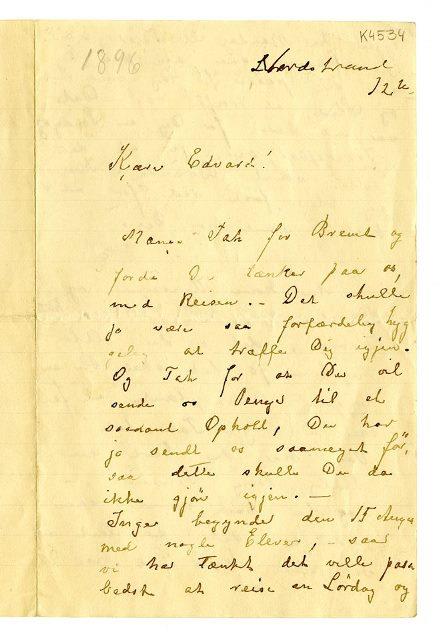 K4534
1896
Nordstrand
12te
Kjære Edvard!
Mange Tak for Brevet og
fordi Du tænker paa os,
med Reisen. – Det skulle
jo være saa forfærdelig hyg
gelig at træffe Dig igjen.
Og Tak for at Du vil
sende os Penge til et
saadant Ophold, Du har
jo sendt os saameget før,
saa dette skulle Du da
ikke gjør igjen. –
Inger begynder den 15 Aug
med nogle Elever, – saa
vi har tænkt det ville passe
bedst at reise en Lørdag og